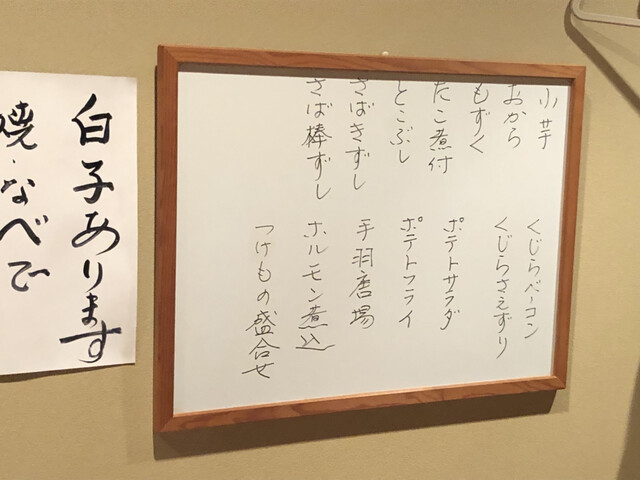 小芋
おから
もずく
たこ煮付
とこぶし
さばきずし
さば棒ずし
くじらベーコン
くじらさえずり
ポテトサラダ
ポテトフライ
手羽唐場
ホルモン煮込
つけもの盛合せ
白子あります
焼・なべで